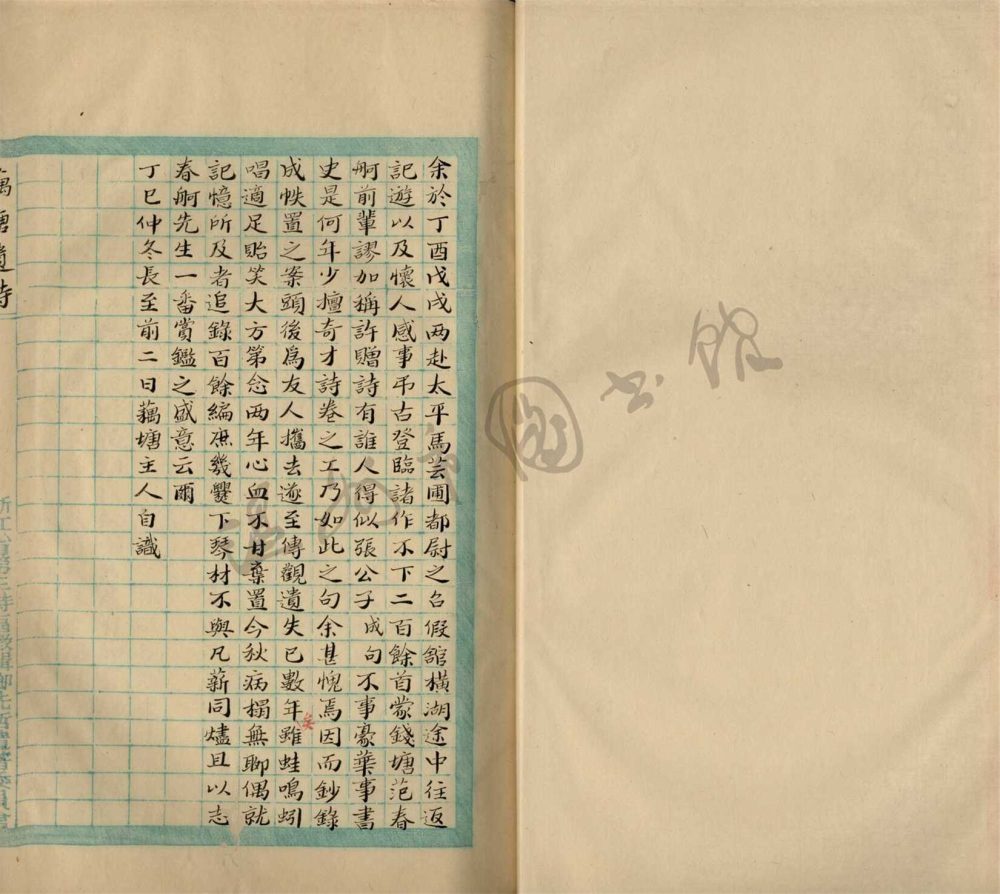 余於丁酉戊戌兩赴太平馬芸圃都尉之召假館橫湖途中往返
記遊以及懷人感事弔古登臨諸作不下二百餘首蒙錢塘范春
舸前輩謬加稱許贈詩有誰人得似張公子成句不事豪華事書
史是何年少擅奇才詩卷之工乃如此之句余甚愧焉因而鈔錄
成帙置之案頭後爲友人攜去遂至傳觀遺失已數年矣雖蛙鳴蚓
唱適足貽笑大方第念兩年心血不甘棄置今秋病榻無聊偶就
記憶所及者追錄百餘編庶幾爨下琴材不與凡薪同燼且以志
春舸先生一番賞鑑之盛意云爾
丁巳仲冬長至前二日藕塘主人自識
藕塘遺詩
書館